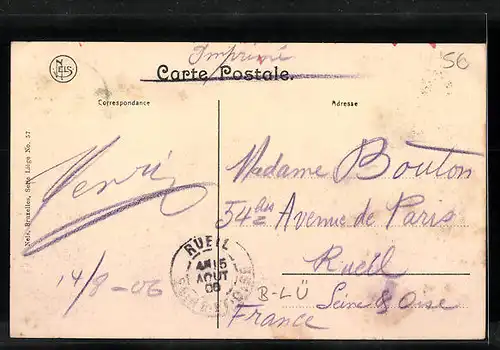 Imprimé
56
NELS
Carte Postale.
Correspondance
Adresse
Nels, Bruxelles, Serie Liége No. 57
Henri
14/8-06
RUEIL
15
AOUT
06
Madame Bouton
54 bis Avenue de Paris
Rueil
B-LÜ
Seine & Oise
France